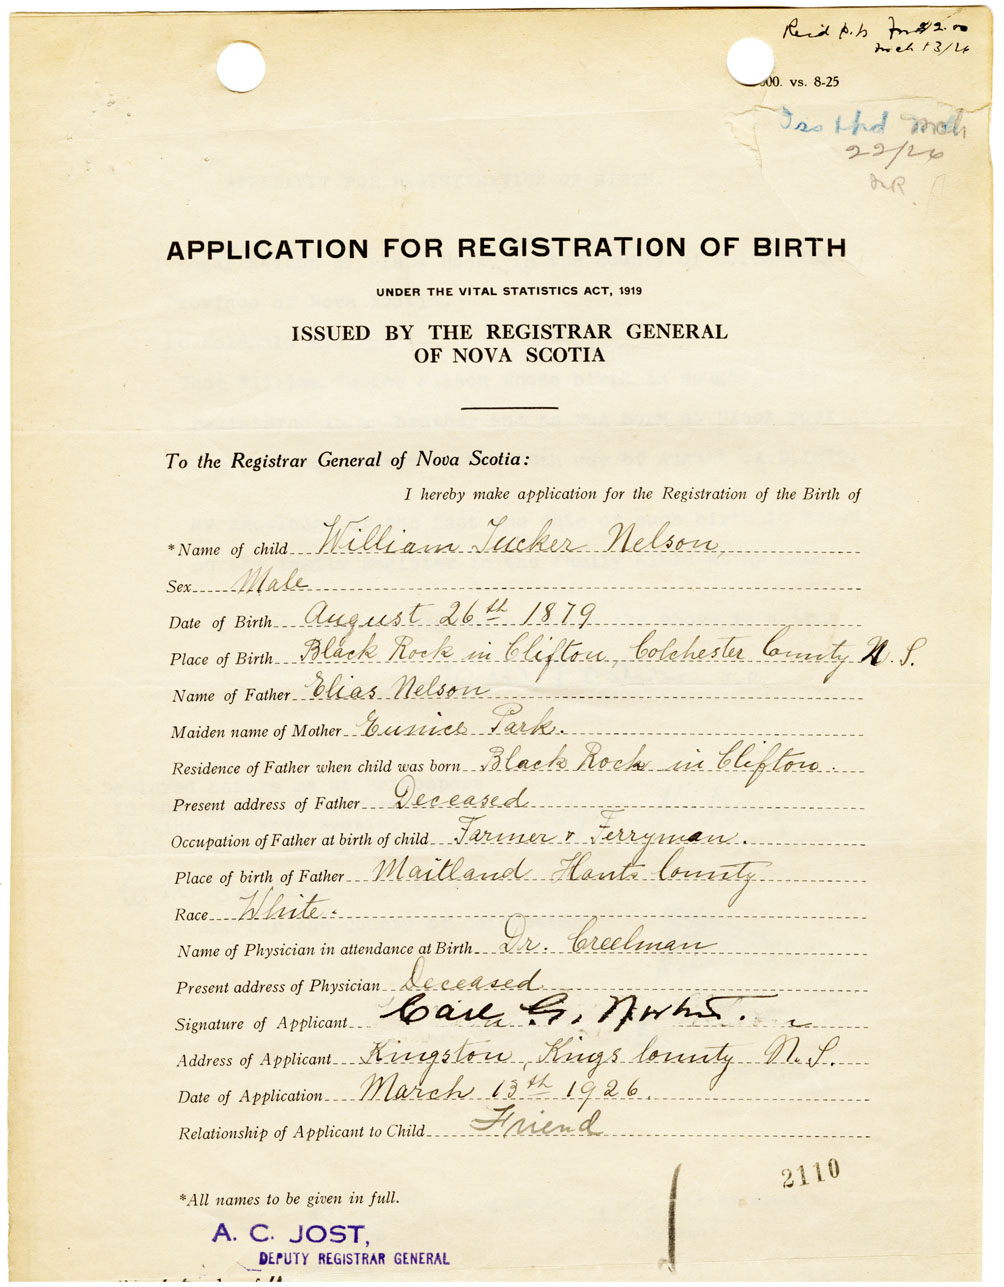 Rec'd $2.00
Mch 13/26
000. vs. 8-25
Mch
22/26
APPLICATION FOR REGISTRATION OF BIRTH
UNDER THE VITAL STATISTICS ACT, 1919
ISSUED BY THE REGISTRAR GENERAL
OF NOVA SCOTIA
To the Registrar General of Nova Scotia:
I hereby make application for the Registration of the Birth of
*Name of child William Tucker Nelson,
Sex Male
Date of Birth August 26th 1879
Place of Birth Black Rock in Clifton, Colchester County N.S.
Name of Father Elias Nelson
Maiden name of Mother Eunice Park.
Residence of Father when child was born Black Rock in Clifton.
Present address of Father Deceased
Occupation of Father at birth of child Farmer & Ferryman.
Place of birth of Father Maitland Hants County
Race White.
Name of Physician in attendance at Birth Dr. Creelman
Present address of Physician Deceased
Signature of Applicant G.
Address of Applicant Kingston, Kings County N.S.
Date of Application March 13th 1926.
Relationship of Applicant to Child Friend
2110
*All names to be given in full.
A. C. JOST,
DEPUTY REGISTRAR GENERAL